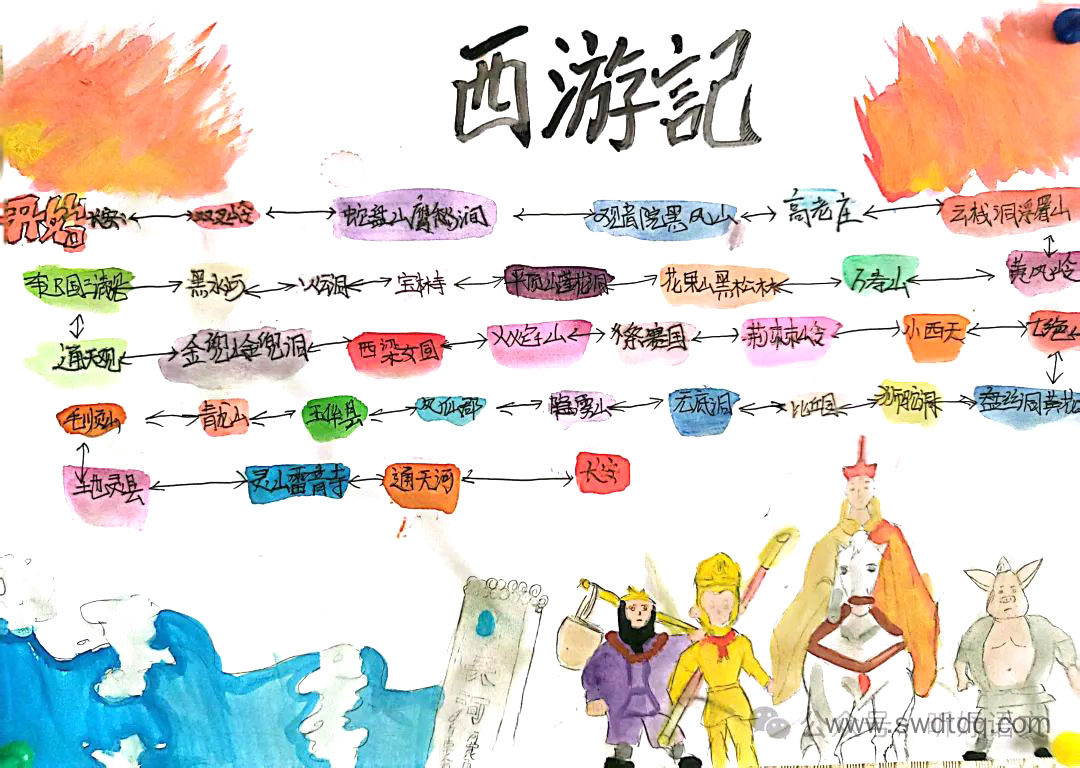 西游記
开始 长安 双叉岭 蛇盘山鹰愁涧 观音院黑风山 高老庄 云栈洞浮屠山
车风国三清观 黑水河 火云洞 宝林寺 平顶山莲花洞 花果山黑松林 万寿山 黄风岭
通天观 金兜山金兜洞 西梁女国 小西天 七绝
毛颖山 青龙山 玉华县 隐雾山 无底洞 比丘国 狮驼洞 盘丝洞黄花
地灵县 灵山雷音寺 通天河 长安
www.swdtdq.com